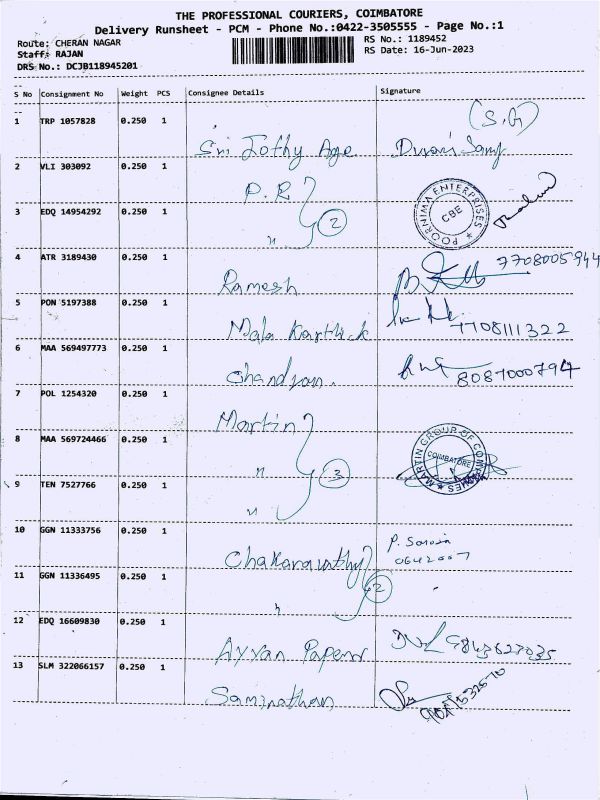 THE PROFESSIONAL COURIERS, COIMBATORE
Delivery Runsheet - PCM - Phone No.:0422-3505555 - Page No.:1
Route: CHERAN NAGAR
RS No.: 1189452
Staff: RAJAN
RS Date: 16-Jun-2023
DRS No.: DCJB118945201
S No Consignment No Weight PCS Consignee Details Signature
(S.G)
1 TRP 1057828 0.250 1 Sri Jothy Age
2 VLI 303092 0.250 1 P.R
POORNIMA ENTERPRISES
CBE
3 EDQ 14954292 0.250 1 " 2
4 ATR 3189430 0.250 1 Ramesh 7708005944
5 PON 5197388 0.250 1 Mala Karthick 7708111322
6 MAA 569497773 0.250 1 Chandran. 8087000794
7 POL 1254320 0.250 1 Martin
MARTIN GROUP OF COMPANIES
COIMBATORE
8 MAA 569724466 0.250 1 " 3
9 TEN 7527766 0.250 1 "
10 GGN 11333756 0.250 1 Chakaravrthy P. Saroja
11 GGN 11336495 0.250 1 " 2
12 EDQ 16609830 0.250 1 Ayyan Papers 9843627035
13 SLM 322066157 0.250 1 Saminathan